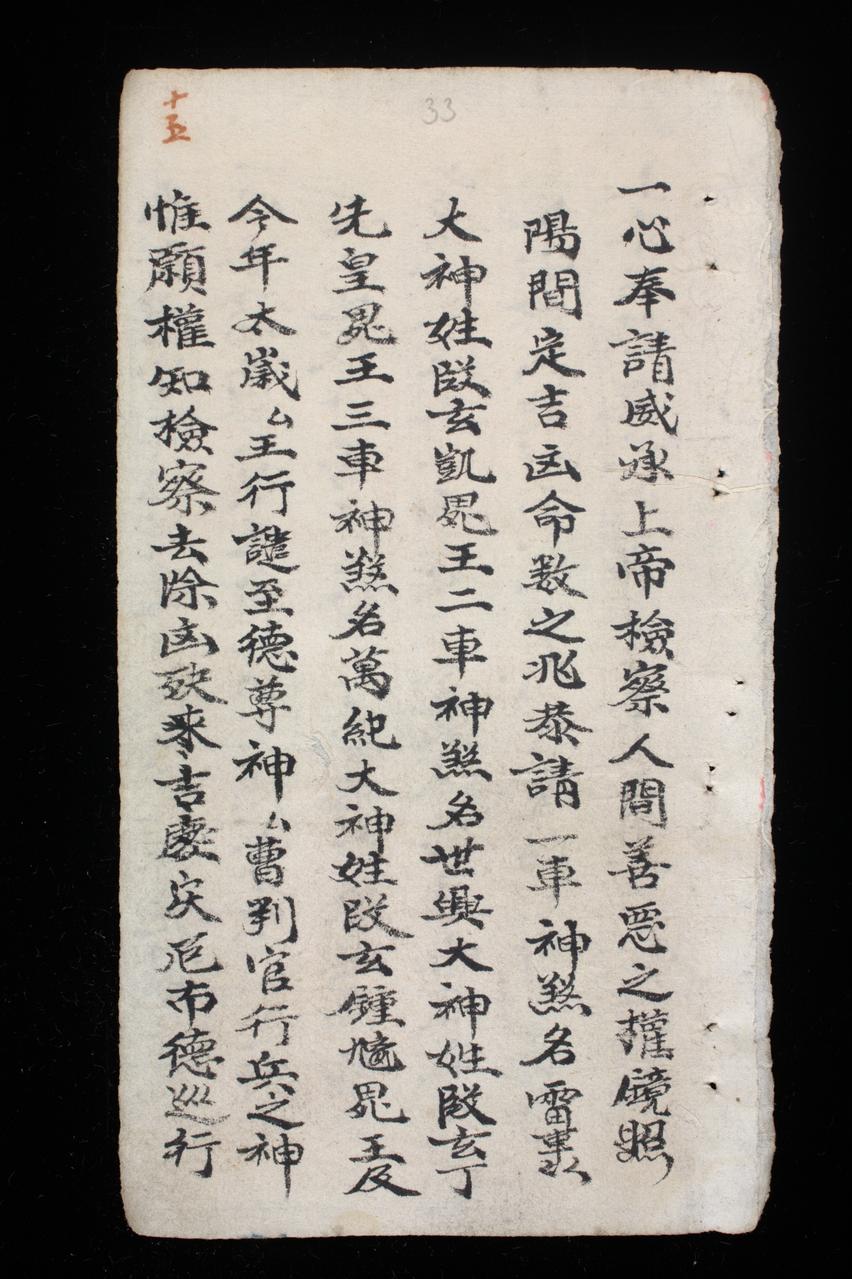 一心奉請威承上帝檢察人間善惡之權鏡照
陽間定吉凶命数之兆恭請一車神煞名雷
大神姓段玄凱鬼王二車神煞名世興大神姓段玄丁
先皇鬼王三車神煞名萬紀大神姓段玄鍾馗鬼王及
今年太歲々王行譴至德尊神々曹判官行兵之神
惟願權知檢察去除凶致来吉慶灾厄布德巡行
十五
33